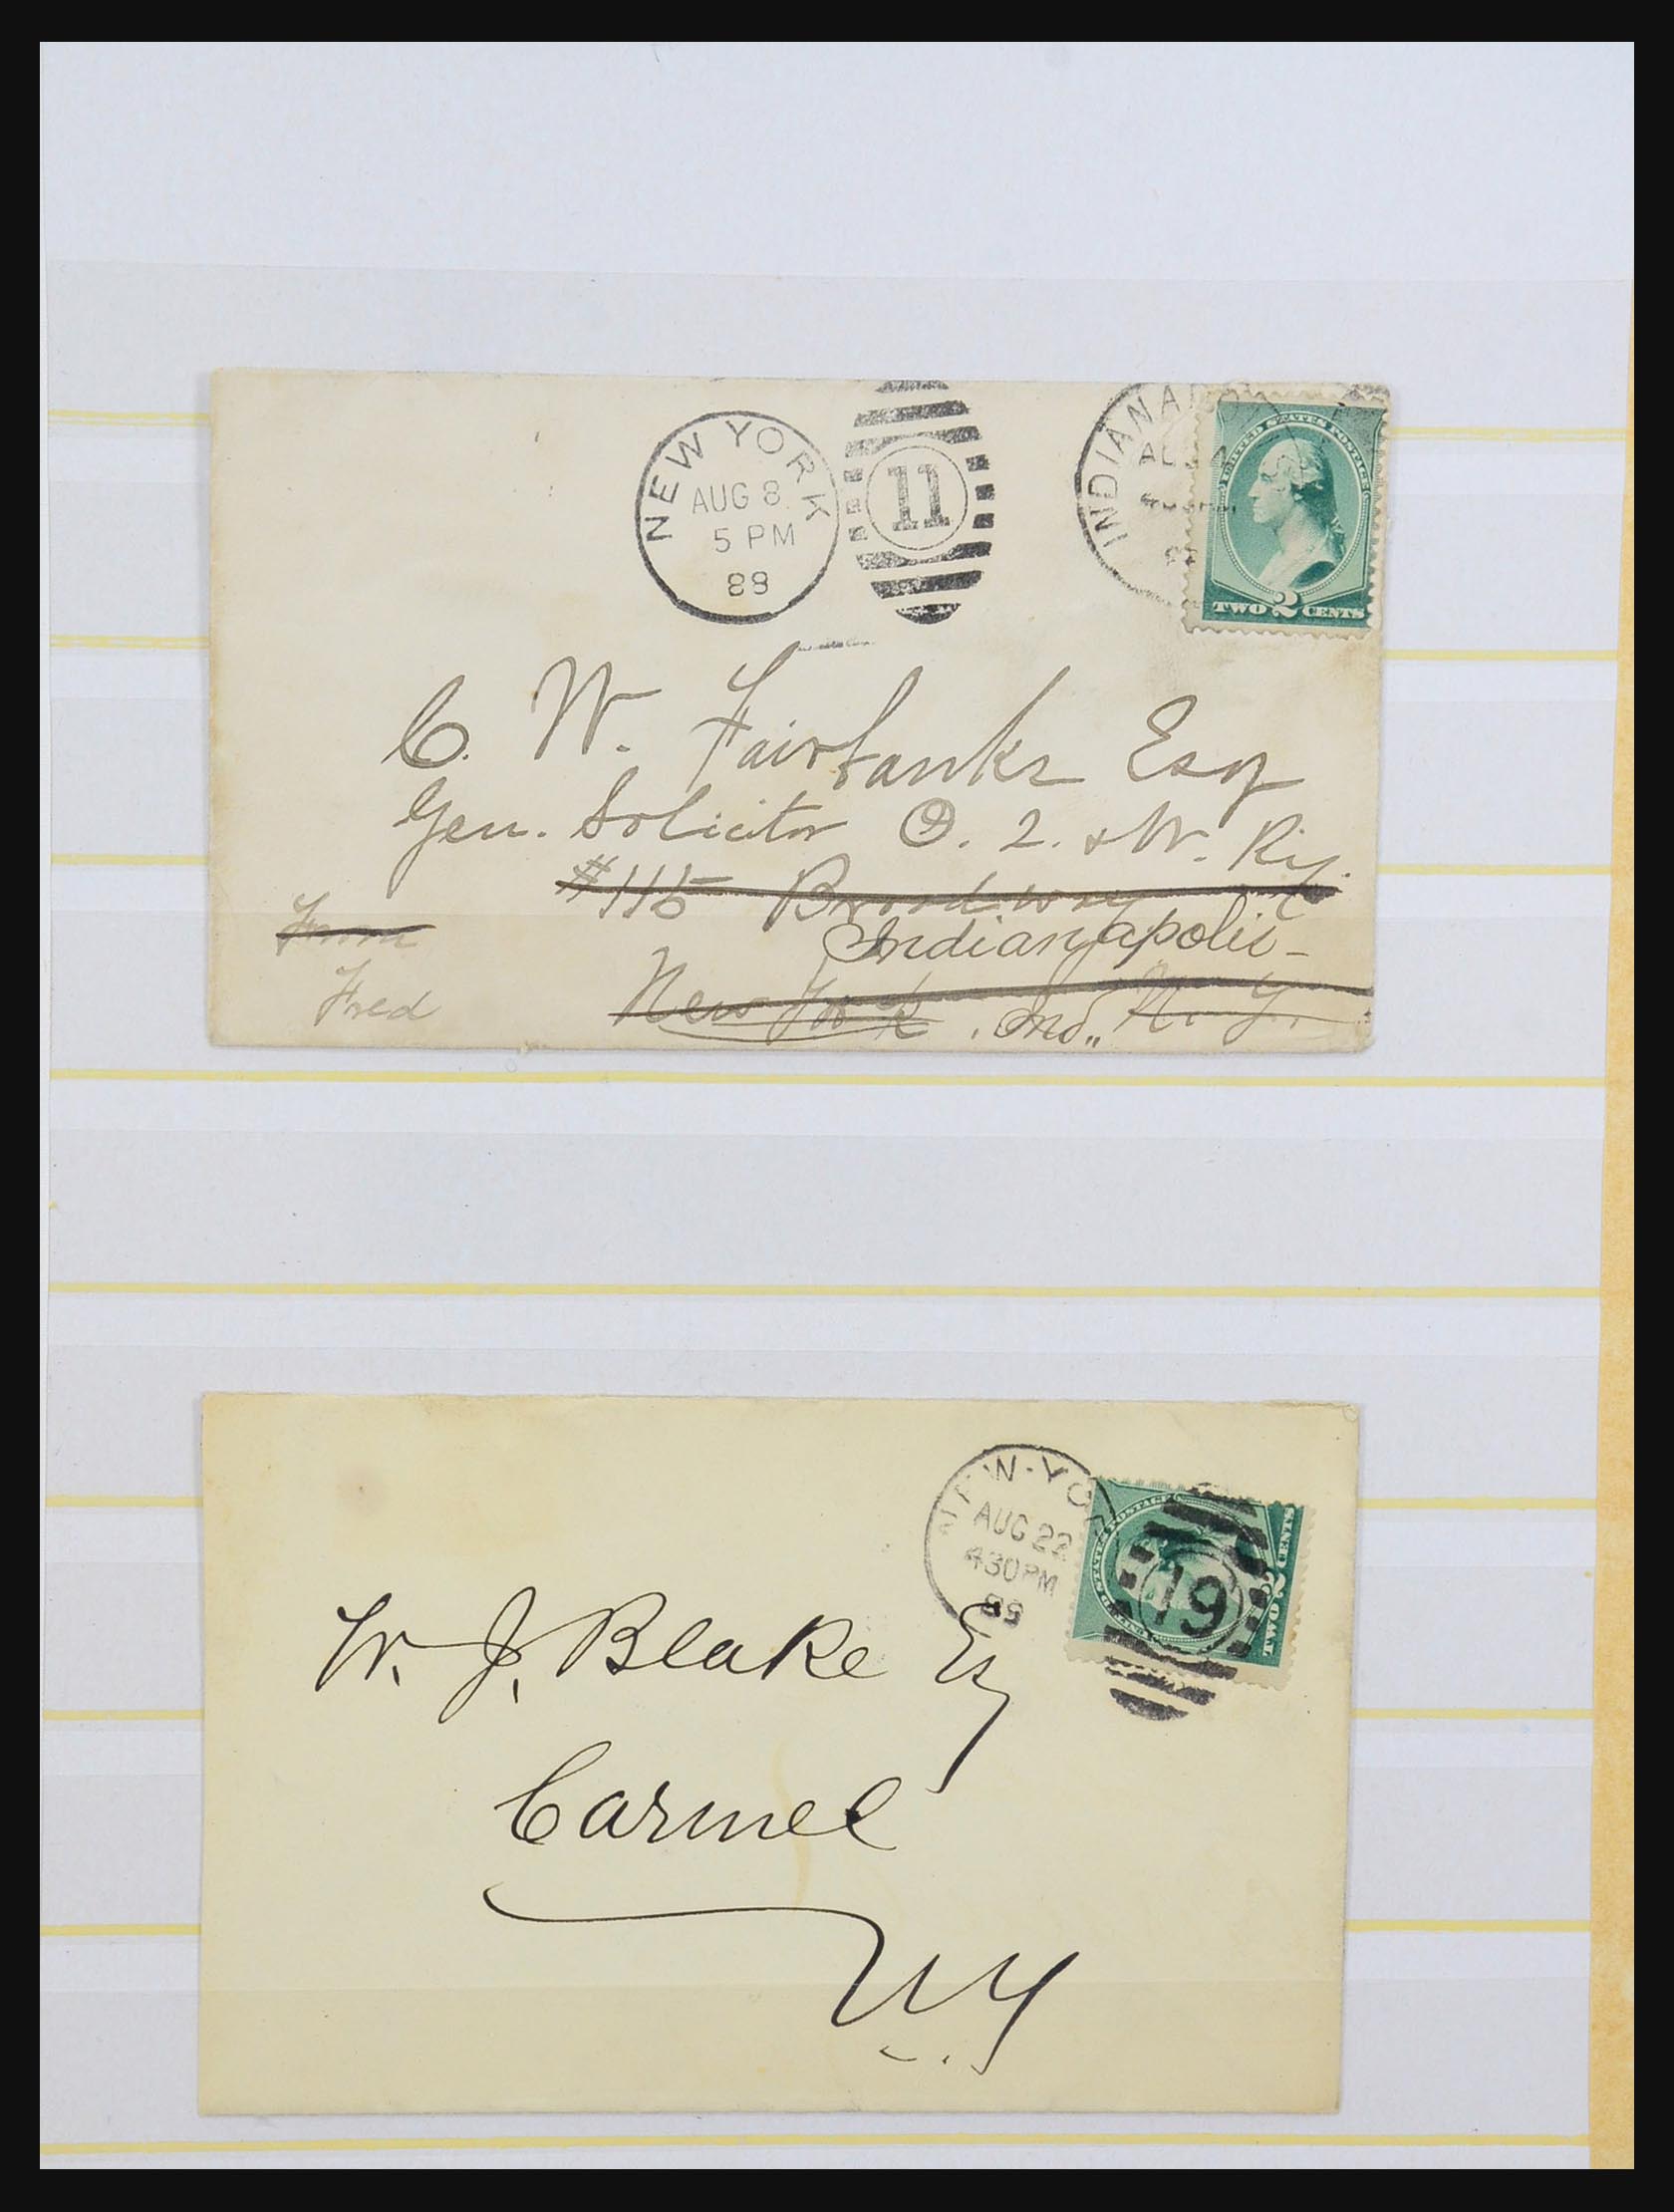 NEW YORK
AUG 8
5 PM
88
11
INDIANAPO
UNITED STATES POSTAGE
TWO 2 CENTS
C. W. Fairbanks Esq
Gen. Solicitor O. I. & W. Ry.
#115 Broadway
From
Indianapolis-
Fred
New York , Ind,, N. Y.
NEW-YOR
AUG 22
430PM
19
UNITED STATES POSTAGE
TWO 2 CENTS
W. J. Blake Esq
Carmel
N.Y.